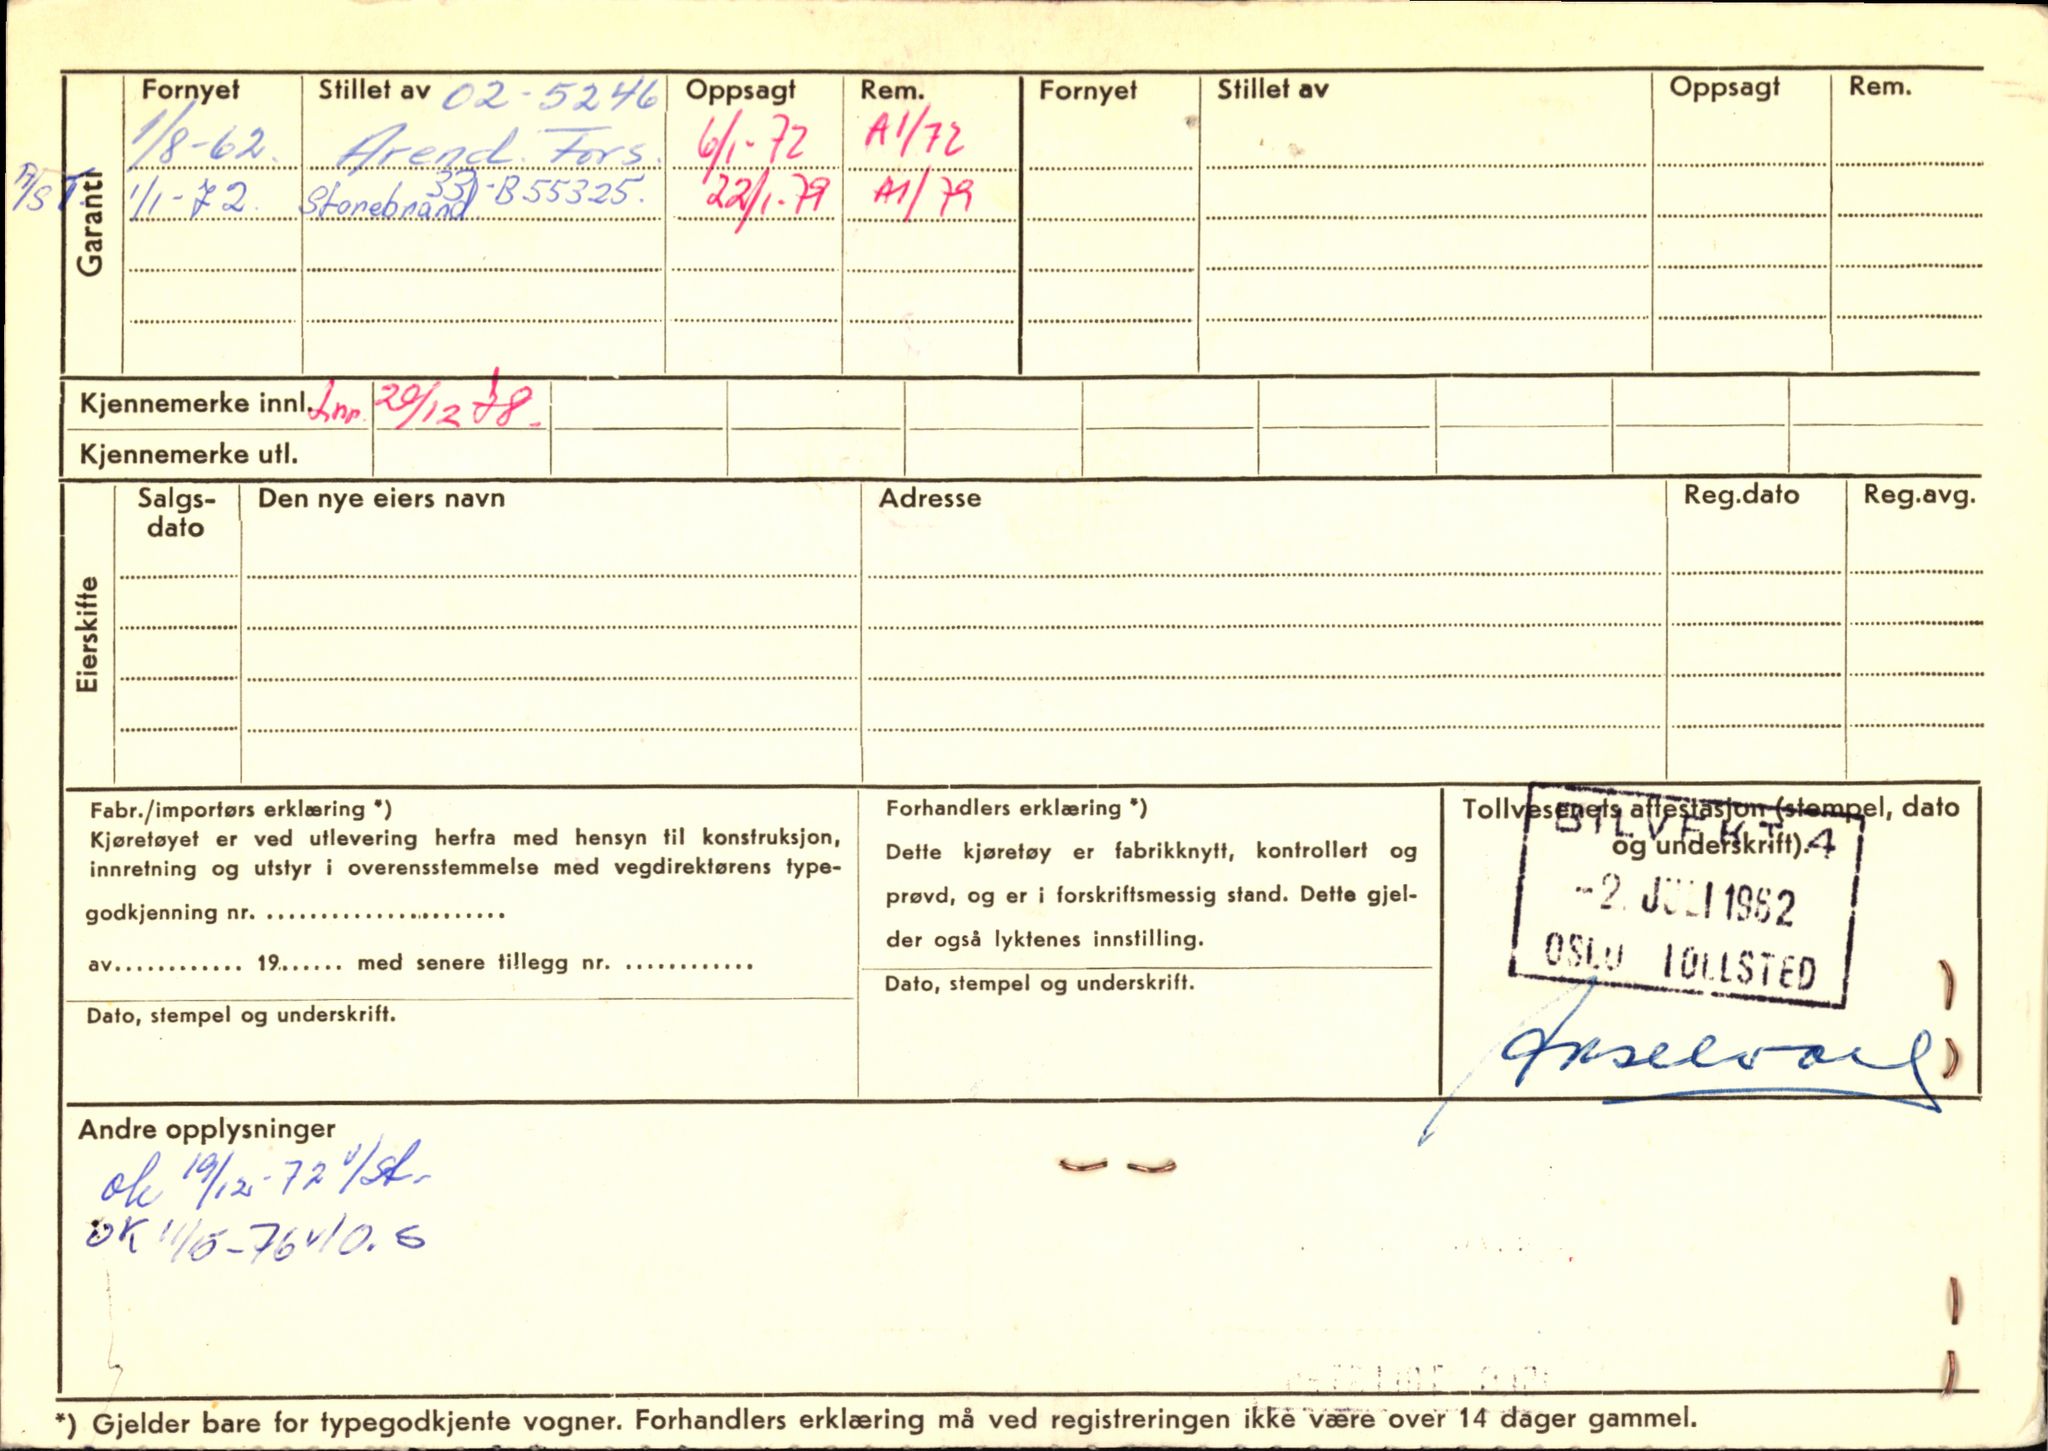 Garanti
Fornyet Stillet av 02-5246 Oppsagt Rem. Fornyet Stillet av Oppsagt Rem.
1/8-62. Arend. Fors. 6/1-72 A1/72
1/1-72. Storebrand 33)-B55325. 22/1-79 A1/79
Kjennemerke innl. Lnr. 20/12 78.
Kjennemerke utl.
Eierskifte
Salgs- Den nye eiers navn Adresse Reg.dato Reg.avg.
dato
Fabr./importørs erklæring *)
Kjøretøyet er ved utlevering herfra med hensyn til konstruksjon,
innretning og utstyr i overensstemmelse med vegdirektørens type-
godkjenning nr. ......................
av............ 19...... med senere tillegg nr. ............
Dato, stempel og underskrift.
Forhandlers erklæring *)
Dette kjøretøy er fabrikknytt, kontrollert og
prøvd, og er i forskriftsmessig stand. Dette gjel-
der også lyktenes innstilling.
Dato, stempel og underskrift.
Tollvesenets attestasjon (stempel, dato
og underskrift).
BILVEKT 4
-2. JULI 1962
OSLO TOLLSTED
Andre opplysninger
ok 19/12-72 v/St.
OK 11/5-76 v/O.S
*) Gjelder bare for typegodkjente vogner. Forhandlers erklæring må ved registreringen ikke være over 14 dager gammel.